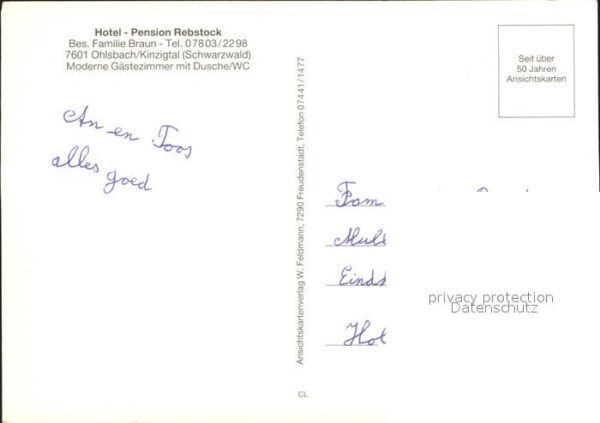 Hotel - Pension Rebstock
Bes. Familie Braun - Tel. 07803/2298
7601 Ohlsbach/Kinzigtal (Schwarzwald)
Moderne Gästezimmer mit Dusche/WC
An en Toos
alles goed
Ansichtskartenverlag W. Feldmann, 7290 Freudenstadt, Telefon 07441/1477
Seit über
50 Jahren
Ansichtskarten
Fam
Einds
privacy protection
Datenschutz
Hol
CL